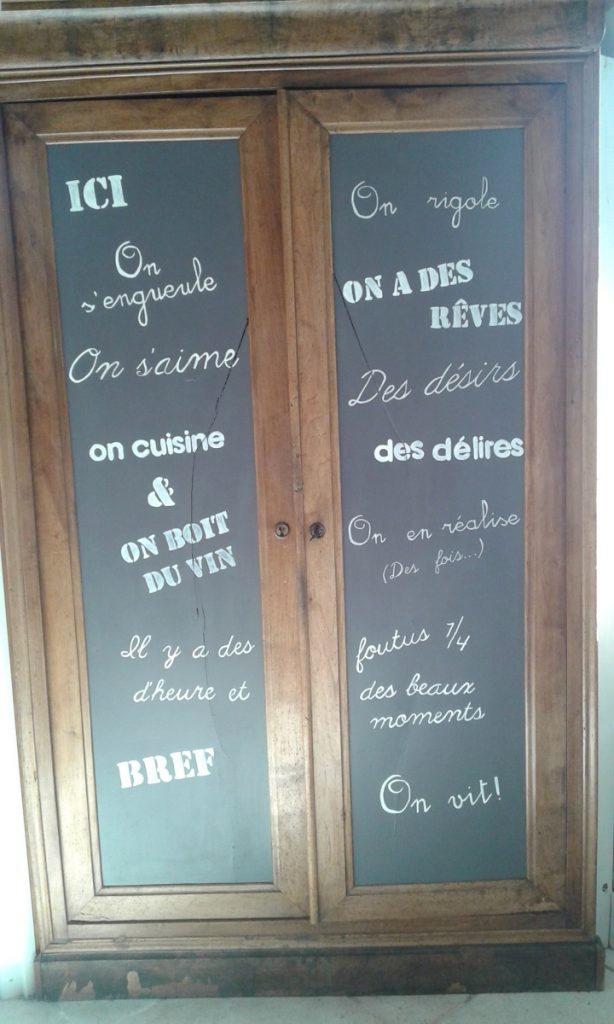 ICI
On
s'engueule
On s'aime
on cuisine
&
ON BOIT
DU VIN
Il y a des
d'heure et
BREF
On rigole
ON A DES
RÊVES
Des désirs
des délires
On en réalise
(Des fois...)
foutus 1/4
des beaux
moments
On vit!